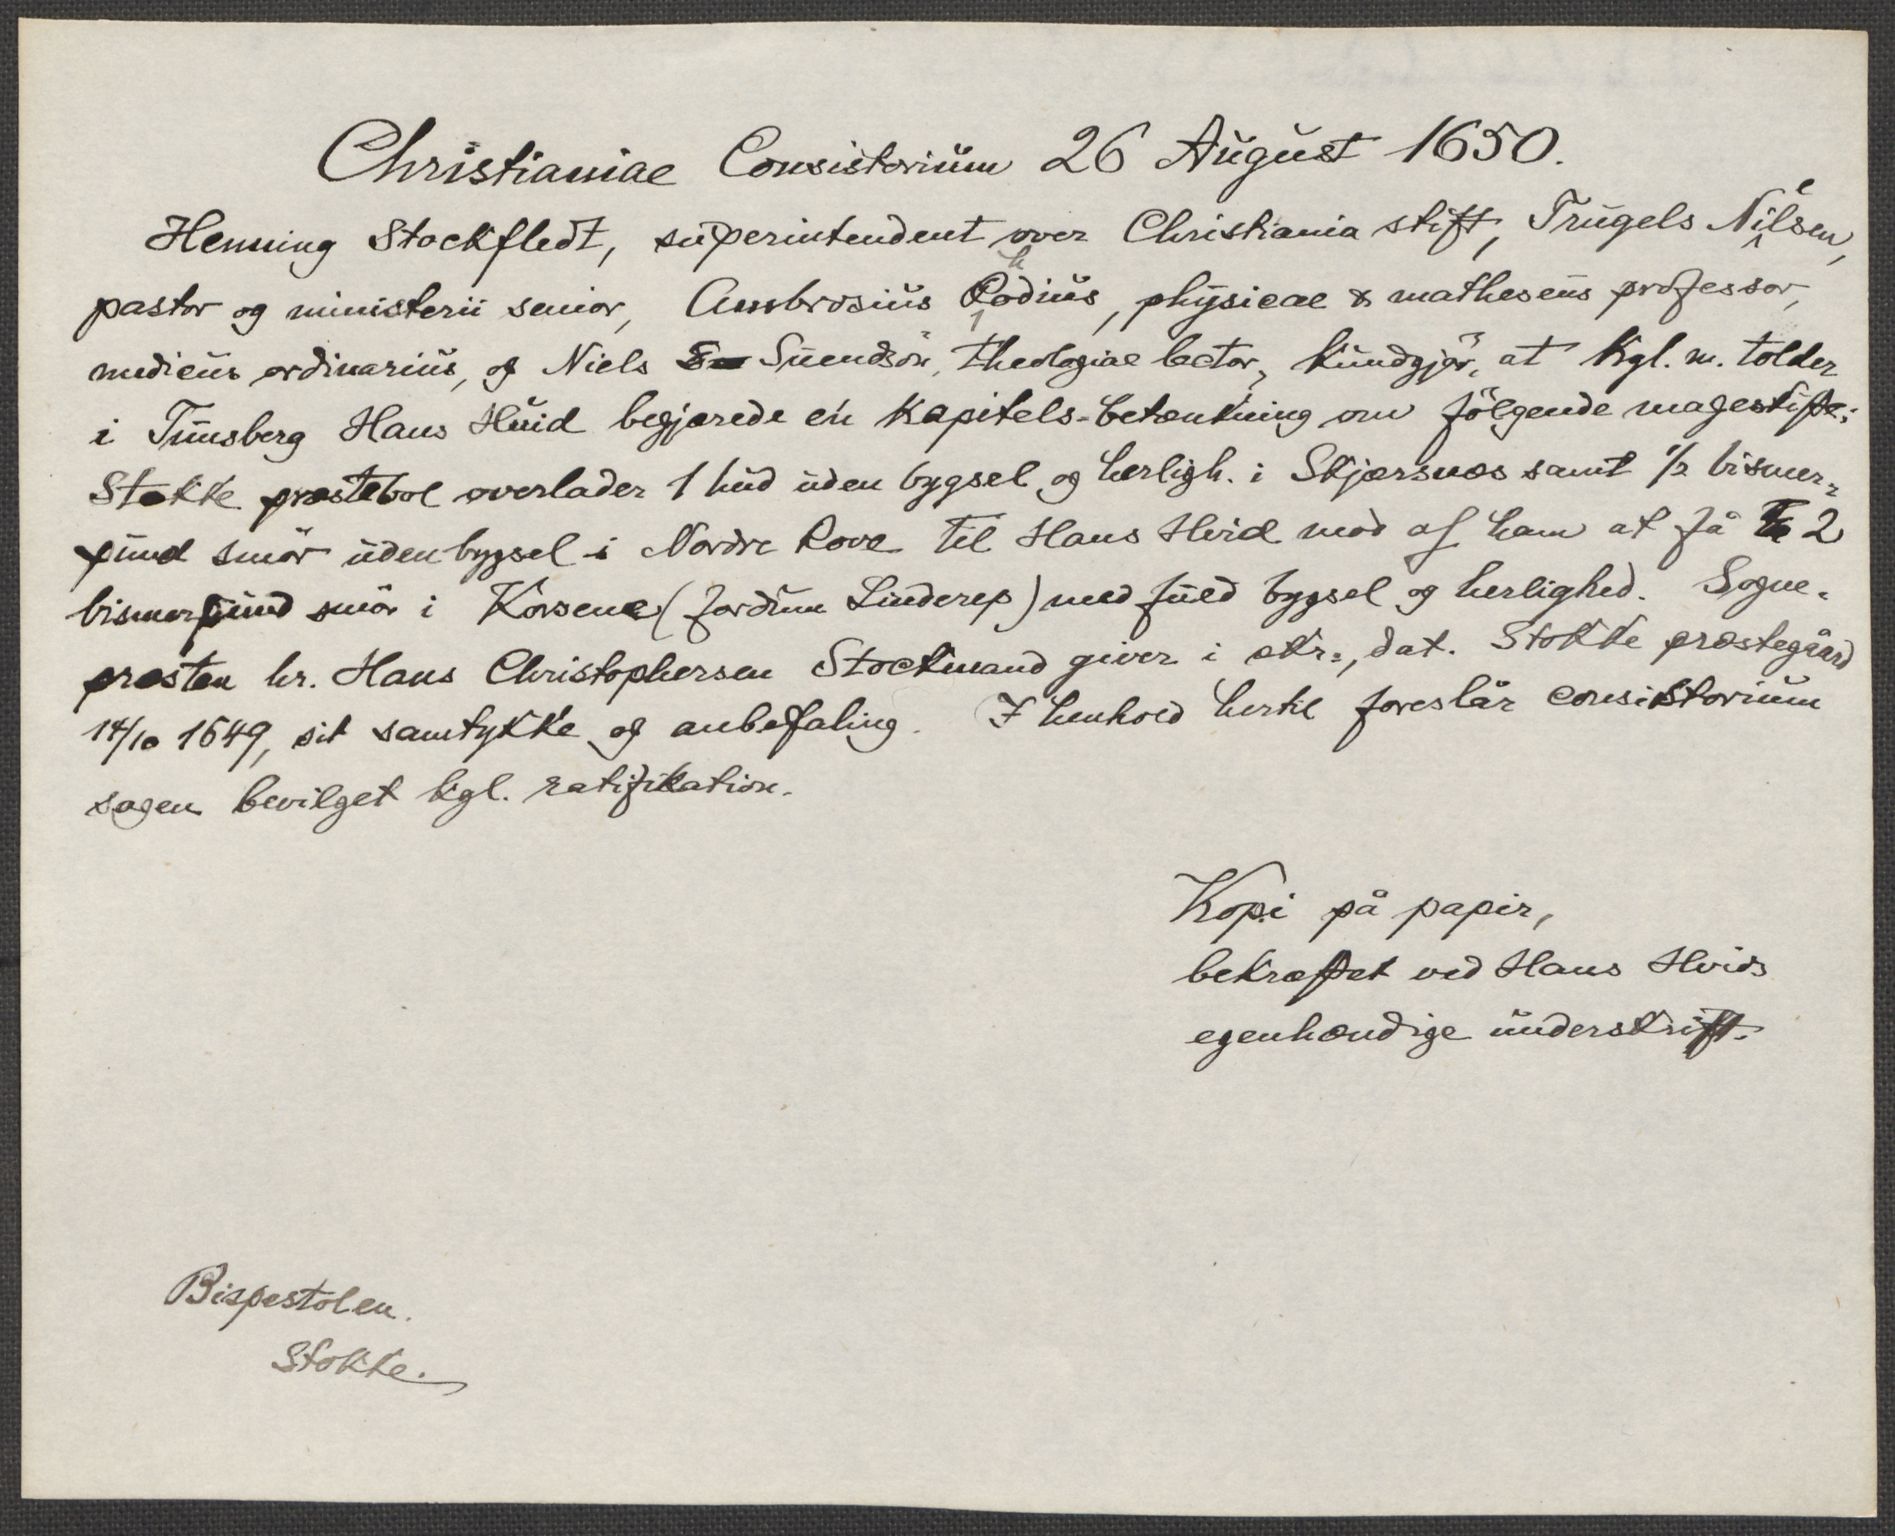 Christianiae Consistorium 26 August 1650.
Henning Stockfledt, superintendent over Christiania stift, Trugels Nielsen,
pastor og ministerii senior, Ambrosius Rhodius, physicae & matheseus professor,
medicus ordinarius, og Niels Suendsön, theologiae lector, kundgjör, at kgl. m. tolder
i Tunsberg Hans Huid begjærede en kapitels-betænkning om fölgende mageskifte:
Stokke præstebol overlader 1 hud uden bygsel og herligh. i Skjærsnæs samt 1/2 bismer-
pund smör uden bygsel i Nordre Rove til Hans Hvid mod af ham at få 2
bismerpund smör i Korsene (fordum Linderep) med fuld bygsel og herlighed. Sogne-
præsten hr. Hans Christophersen Stockmand giver i skr., dat. Stokke præstegård
14/10 1649, sit samtykke og anbefaling. I henhold hertil foreslår consistorium
sagen bevilget kgl. ratifikation.
Kopi på papir,
bekræftet ved Hans Hvids
egenhændige underskrift.
Bispestolen.
Stokke.